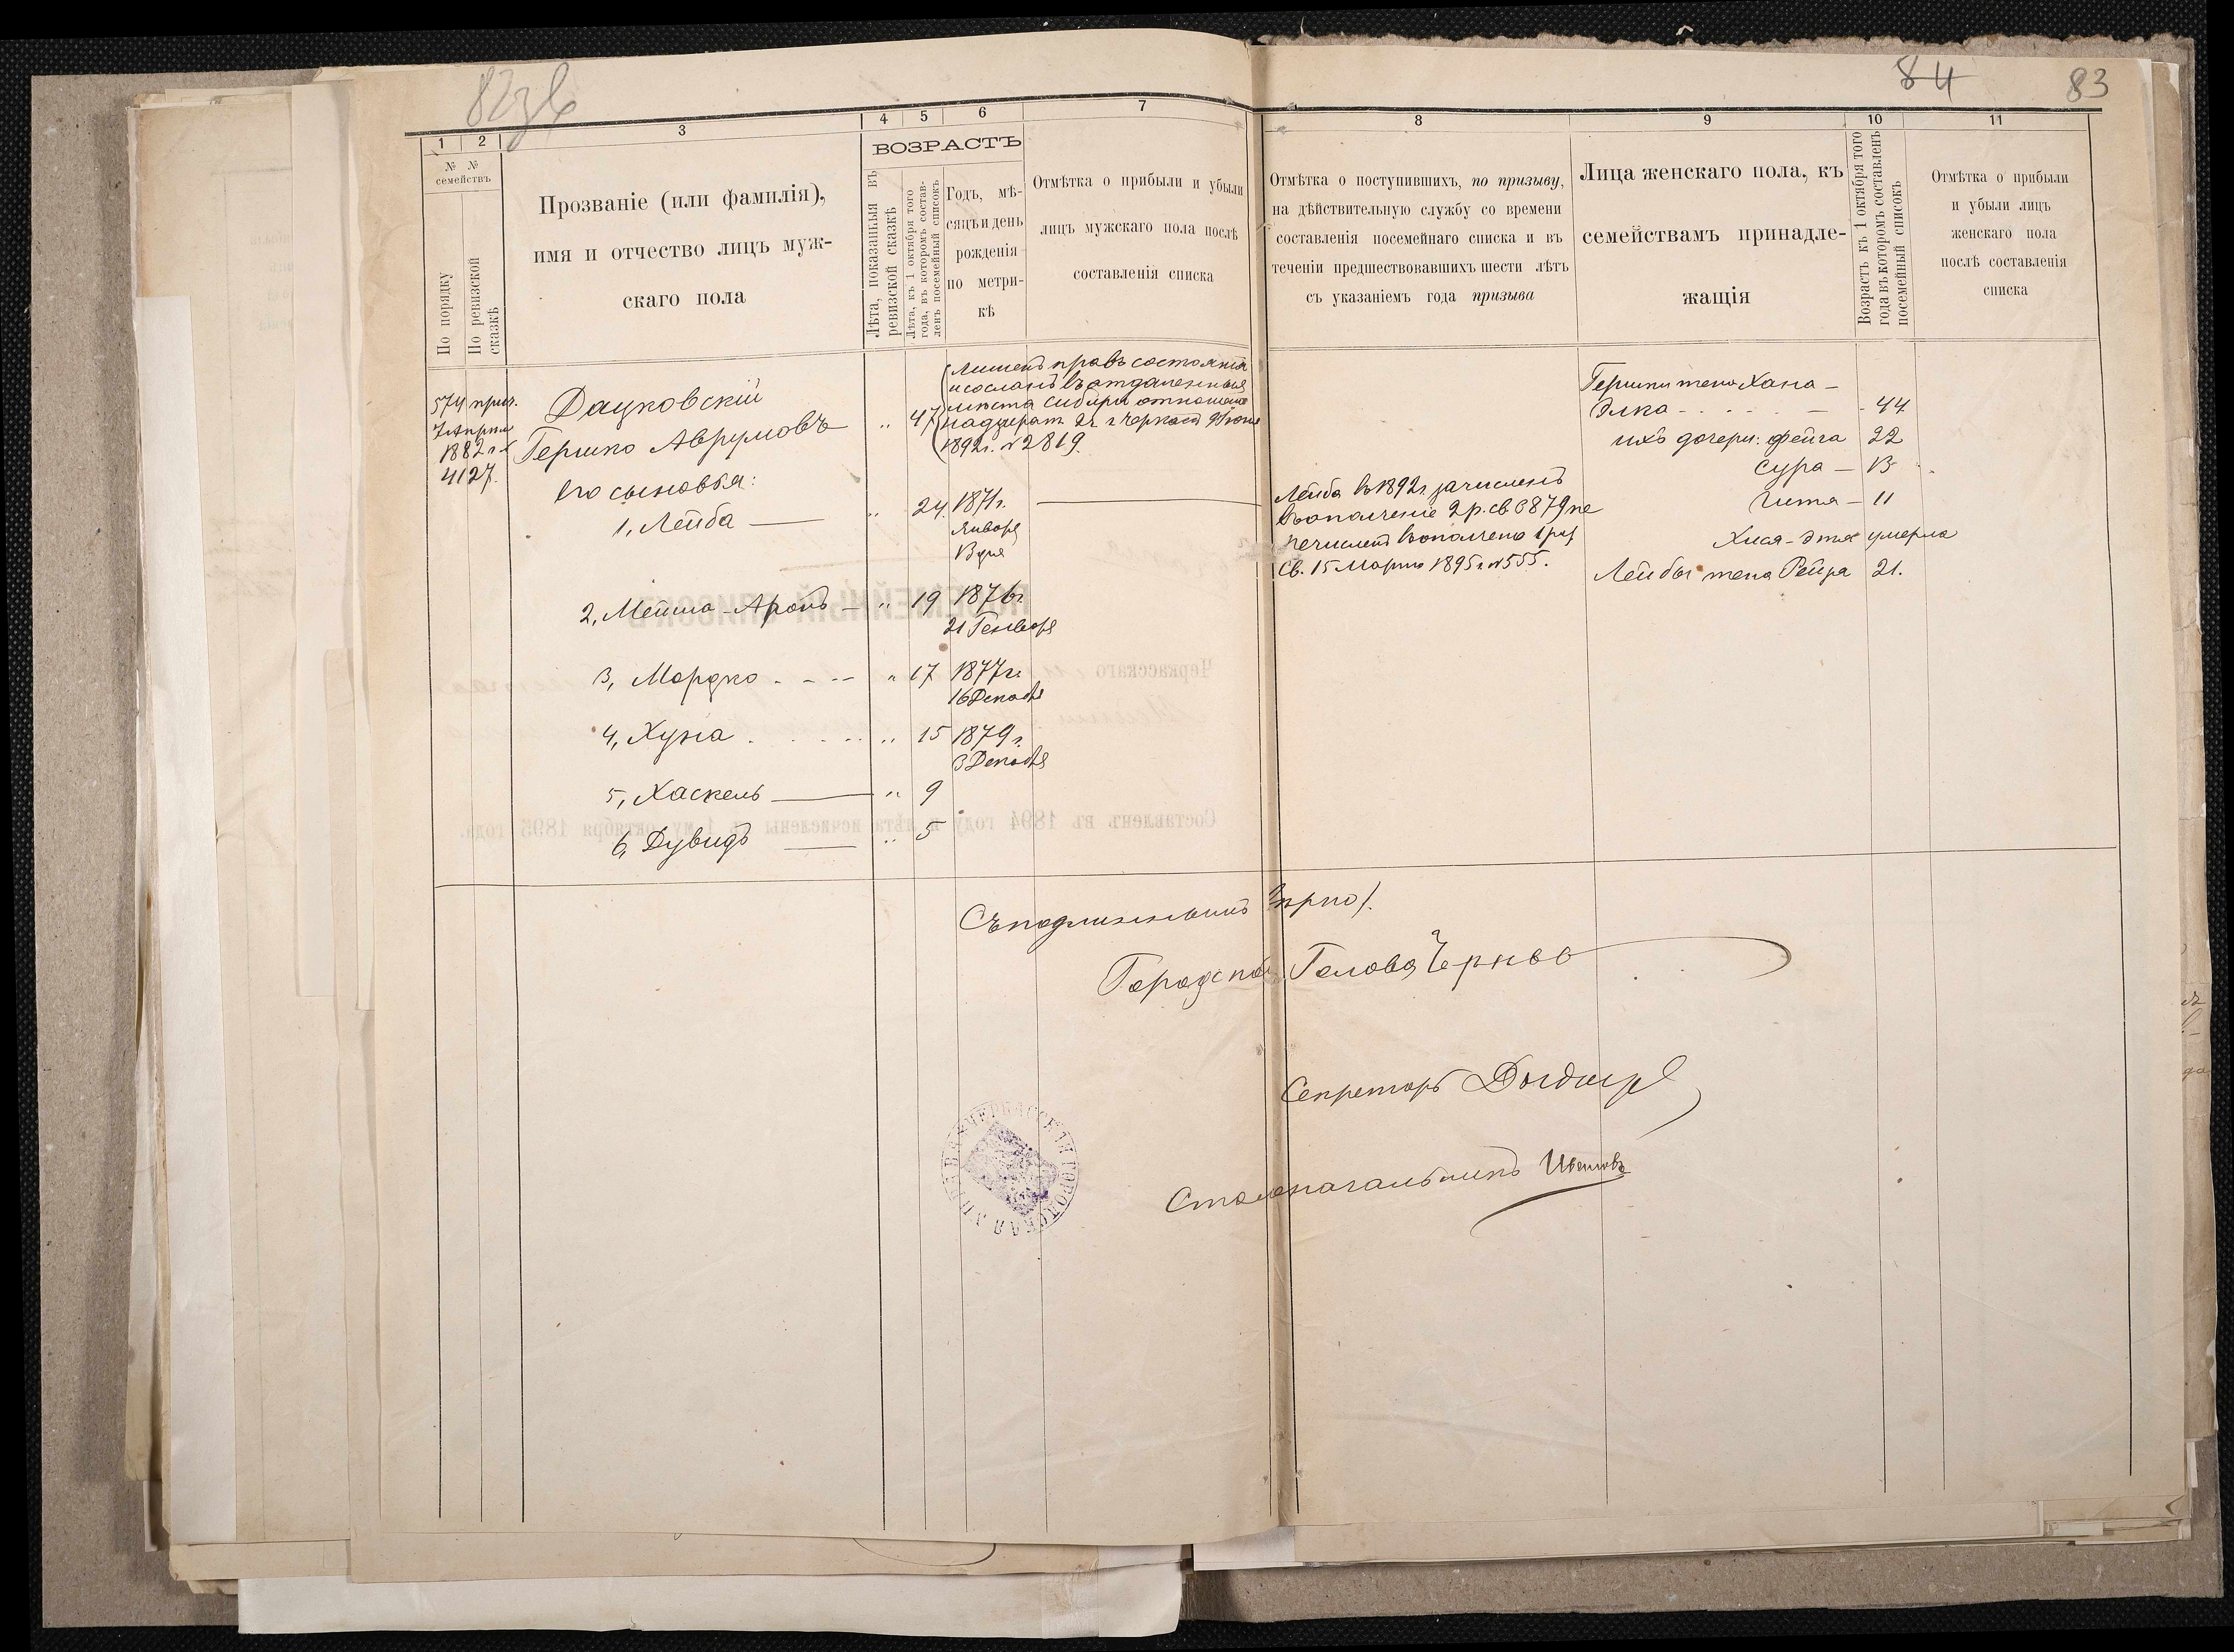 82 зв
84 83
1 2 3 4 5 6 7 8 9 10 11
№ №
семействъ
По порядку
По ревизской
сказкѣ
Прозваніе (или фамилія),
имя и отчество лицъ муж-
скаго пола
ВОЗРАСТЪ
Лѣта, показанныя въ
ревизской сказкѣ
Лѣта, къ 1 октября того
года, въ которомъ состав-
ленъ посемейный списокъ
Годъ, мѣ-
сяцъ и день
рожденія
по метри-
кѣ
Отмѣтка о прибыли и убыли
лицъ мужскаго пола послѣ
составленія списка
Отмѣтка о поступившихъ, по призыву,
на дѣйствительную службу со времени
составленія посемейнаго списка и въ
теченіи предшествовавшихъ шести лѣтъ
съ указаніемъ года призыва
Лица женскаго пола, къ
семействамъ принадле-
жащія
Возрастъ къ 1 октября того
года въ которомъ составленъ
посемейный списокъ
Отмѣтка о прибыли
и убыли лицъ
женскаго пола
послѣ составленія
списка
574 прич.
7 Апрѣля
1882 г.
4127.
Дацковскій
Гершко Аврумовъ „ 47
Лишенъ правъ состоянія
и сосланъ въ отдаленныя
мѣста Сибири отношеніе
надзират. 2 ч. г. Черкассъ 9 Іюня
1892 г. № 2819.
Его сыновья:
1, Лейба — „ 24. 1871 г.
Января
13 дня
2, Мейша-Аронъ — „ 19 1876 г.
21 Генваря
3, Мордко - - - - „ 17 1877 г.
16 Декабя
4, Хуна . . . . . „ 15 1879 г.
3 Декабя
5, Хаскель — „ 9
6, Дувидъ — „ 5
Лейба въ 1892 г. зачисленъ
въ ополченіе 2 р. св. 6879 пе
речисленъ въ ополчено 1 раз
Св. 15 Марта 1895 г. № 555.
Гершки жена Хана -
Элка - - - - - 44
ихъ дочери: Фейга 22
Сура — 13
Гитя — 11
Хися-Этя умерла
Лейбы жена Рейза 21.
Съ подлиннымъ вѣрно/.
Городской Голова
Секретарь
Столоначальникъ
ЧЕРКАССКАЯ ГОРОДСКАЯ УПРАВА
ПОСЕМЕЙНЫЙ СПИСОКЪ
Черкасскаго
Составленъ въ 1894 году и лѣта исчислены къ 1-му октября 1895 года.